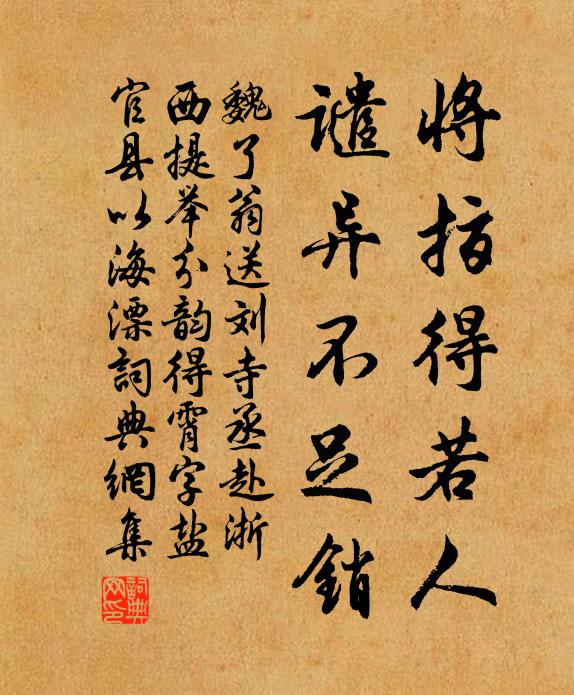 将指得若人
谴异不足销
魏了翁送刘寺丞赴浙
西提举分韵得霄字盐
官县以海漂詞典網集
詞典網印